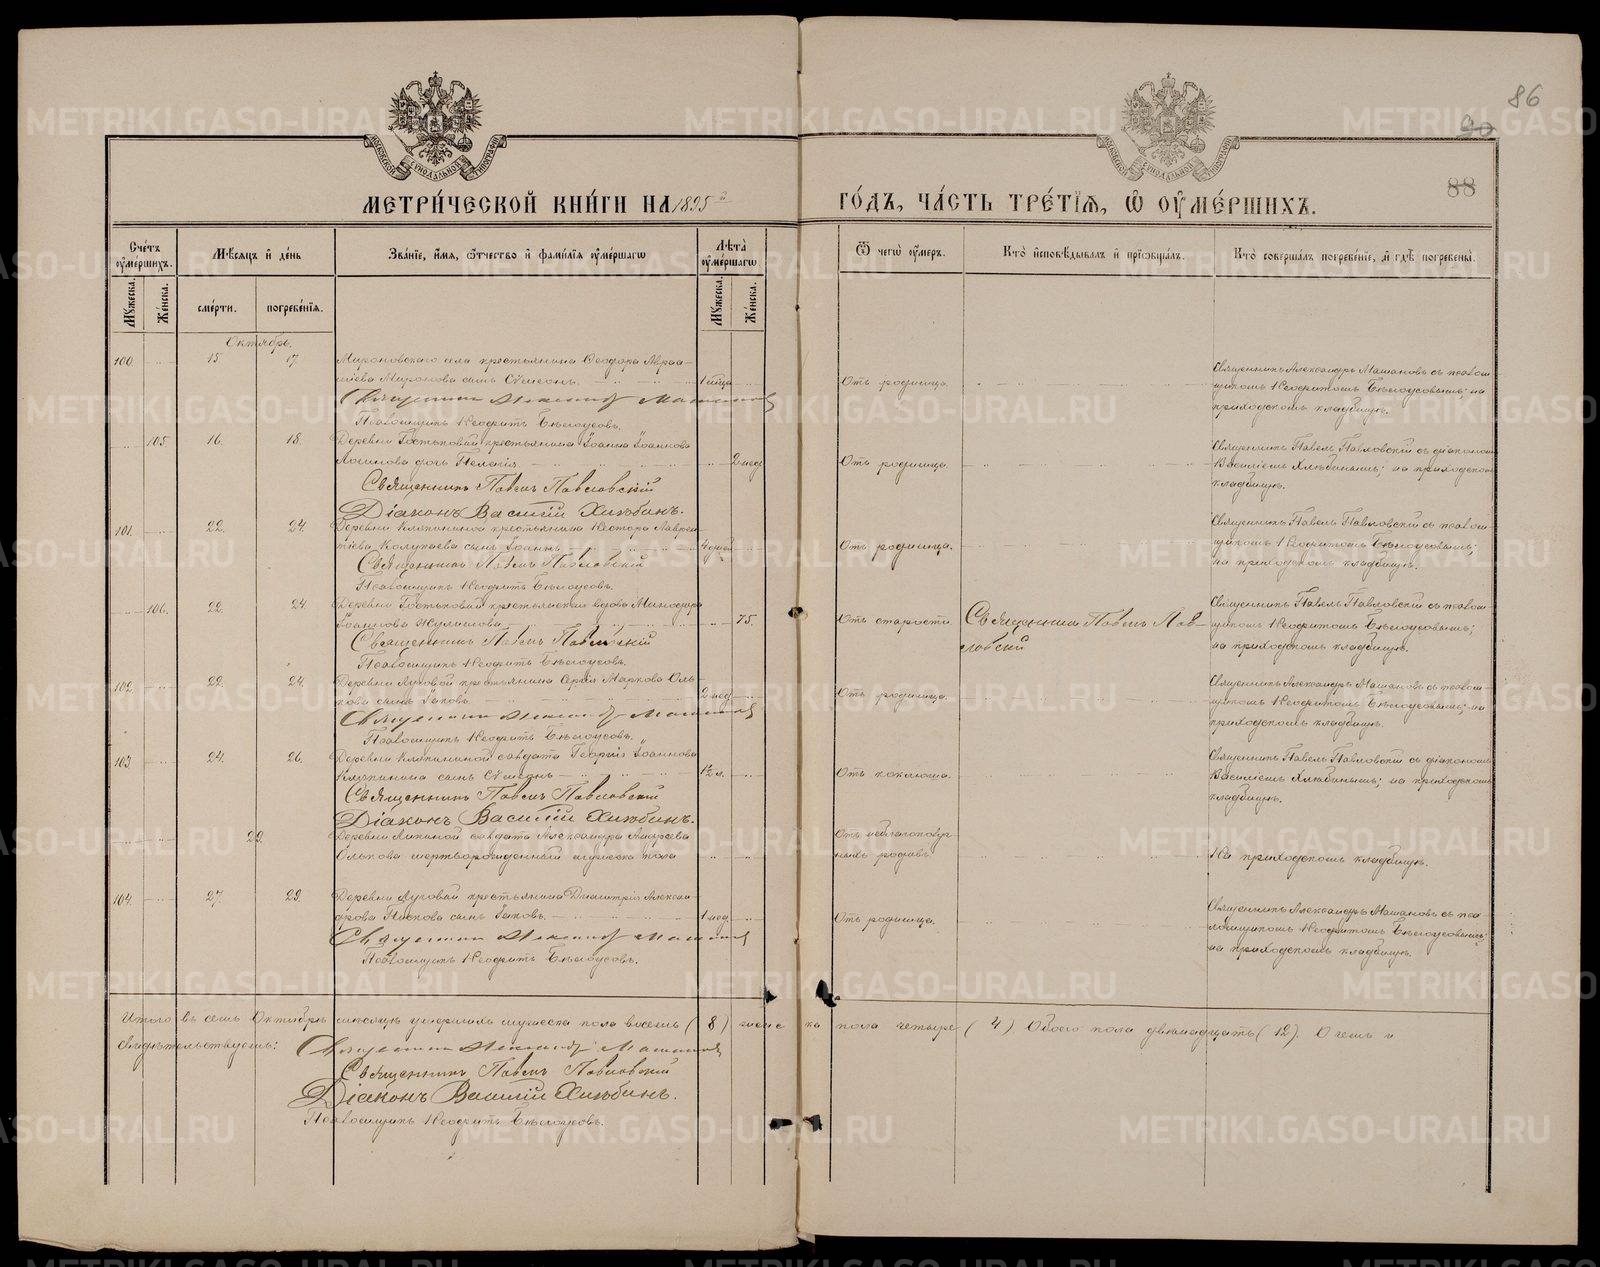 86
90
88
МЕТРИ́ЧЕСКОЙ КНИ́ГИ НА 1895й
ГО́ДЪ, ЧА́СТЬ ТРЕ́ТЇѦ, Ѡ ОУМЕ́РШИХЪ.
МОСКОВСКОЙ СѴНОДАЛЬНОЙ ТИПОГРАФІИ
Сче́тъ оуме́ршихъ.
Мꙋжеска.
Же́нска.
Мѣ́сѧцъ и҆ де́нь
сме́рти.
погребе́нїѧ.
Зва́нїе, и҆́мѧ, ѻ҆́тчество и҆ фамѝлїѧ оуме́ршагѡ
Лѣ́та оуме́ршагѡ
Мꙋжеска.
Же́нска.
Ѿ чегѡ̀ оу́меръ.
Кто̀ и҆сповѣ́дывалъ и҆ прїѡбща́лъ.
Кто̀ соверша́лъ погребе́нїе, и҆ гдѣ̀ погребены̀.
Октябрь.
100. 15. 17
Мироновскаго села крестьянина Ѳеодора
Миронова сынъ Сѵмеонъ.
Священникъ Александръ Машановъ
Псаломщикъ Неофитъ Бѣлоусовъ.
Отъ родимца.
Священникъ Александръ Машановъ съ псалом-
щикомъ Неофитомъ Бѣлоусовымъ; на
приходскомъ кладбищѣ.
105 16. 18.
Деревни крестьянина Іоанна Іоаннова
Логинова дочь Пелагія
2 нед
Священникъ Павелъ Павловскій
Діаконъ Василій Хлѣбинъ.
Отъ родимца.
Священникъ Павелъ Павловскій съ діакономъ
Василіемъ Хлѣбинымъ; на приходскомъ
кладбищѣ.
101. 22. 24.
Деревни Кляпининой крестьянина Нестора Лаврен-
тіева сынъ Іоаннъ
4 дней
Священникъ Павелъ Павловскій
Псаломщикъ Неофитъ Бѣлоусовъ.
Отъ родимца.
Священникъ Павелъ Павловскій съ псалом-
щикомъ Неофитомъ Бѣлоусовымъ;
на приходскомъ кладбищѣ.
106. 22. 24.
Деревни крестьянская вдова Минодора
Іоаннова
75.
Священникъ Павелъ Павловскій
Псаломщикъ Неофитъ Бѣлоусовъ.
Отъ старости
Священникъ Павелъ Пав-
ловскій
Священникъ Павелъ Павловскій съ псалом-
щикомъ Неофитомъ Бѣлоусовымъ;
на приходскомъ кладбищѣ.
102. 22. 24.
Деревни Луговой крестьянина Маркова Оль-
кова сынъ Іаковъ.
2 нед
Священникъ Александръ Машановъ
Псаломщикъ Неофитъ Бѣлоусовъ.
Отъ родимца.
Священникъ Александръ Машановъ съ псалом-
щикомъ Неофитомъ Бѣлоусовымъ; на
приходскомъ кладбищѣ.
103. 24. 26.
Деревни Кляпининой солдата Георгія Іоаннова
Кляпинина сынъ Сѵмеонъ
1½ л.
Священникъ Павелъ Павловскій
Діаконъ Василій Хлѣбинъ.
Отъ коклюша.
Священникъ Павелъ Павловскій съ діакономъ
Василіемъ Хлѣбинымъ; на приходскомъ
кладбищѣ.
29.
Деревни солдата Александра Андреева
Олькова мертворожденный мужеска пола
Отъ неблагополуч-
ныхъ родовъ
На приходскомъ кладбищѣ.
104. 27. 29.
Деревни Луговой крестьянина Димитрія Алексан-
дрова сынъ Іаковъ.
1 нед
Священникъ Александръ Машановъ
Псаломщикъ Неофитъ Бѣлоусовъ.
Отъ родимца.
Священникъ Александръ Машановъ съ пса-
ломщикомъ Неофитомъ Бѣлоусовымъ;
на приходскомъ кладбищѣ.
Итого въ семъ Октябрѣ мѣсяцѣ умершихъ мужеска пола восемь (8) женска пола четыре (4) Обоего пола двенадцать (12). О чемъ и
свидѣтельствуемъ:
Священникъ Александръ Машановъ
Священникъ Павелъ Павловскій
Діаконъ Василій Хлѣбинъ.
Псаломщикъ Неофитъ Бѣлоусовъ.
METRIKI.GASO-URAL.RU